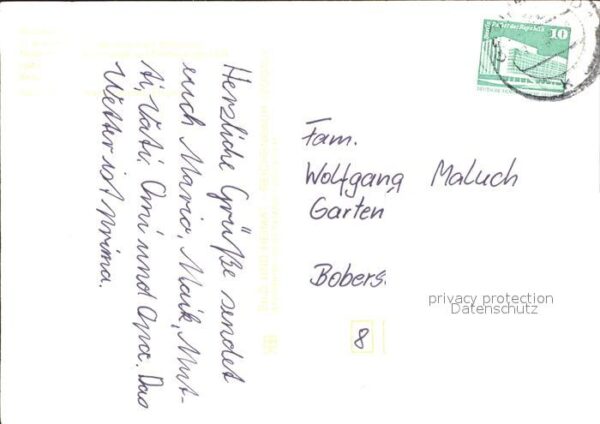 Herzliche Grüße sendet
euch Mario, Maik, Mut-
ti, Vati. Omi und Opa. Das
Wetter ist prima.
Palast der Republik
10
Fam.
Wolfgang Maluch
Garten
Bobers.
privacy protection
Datenschutz
8